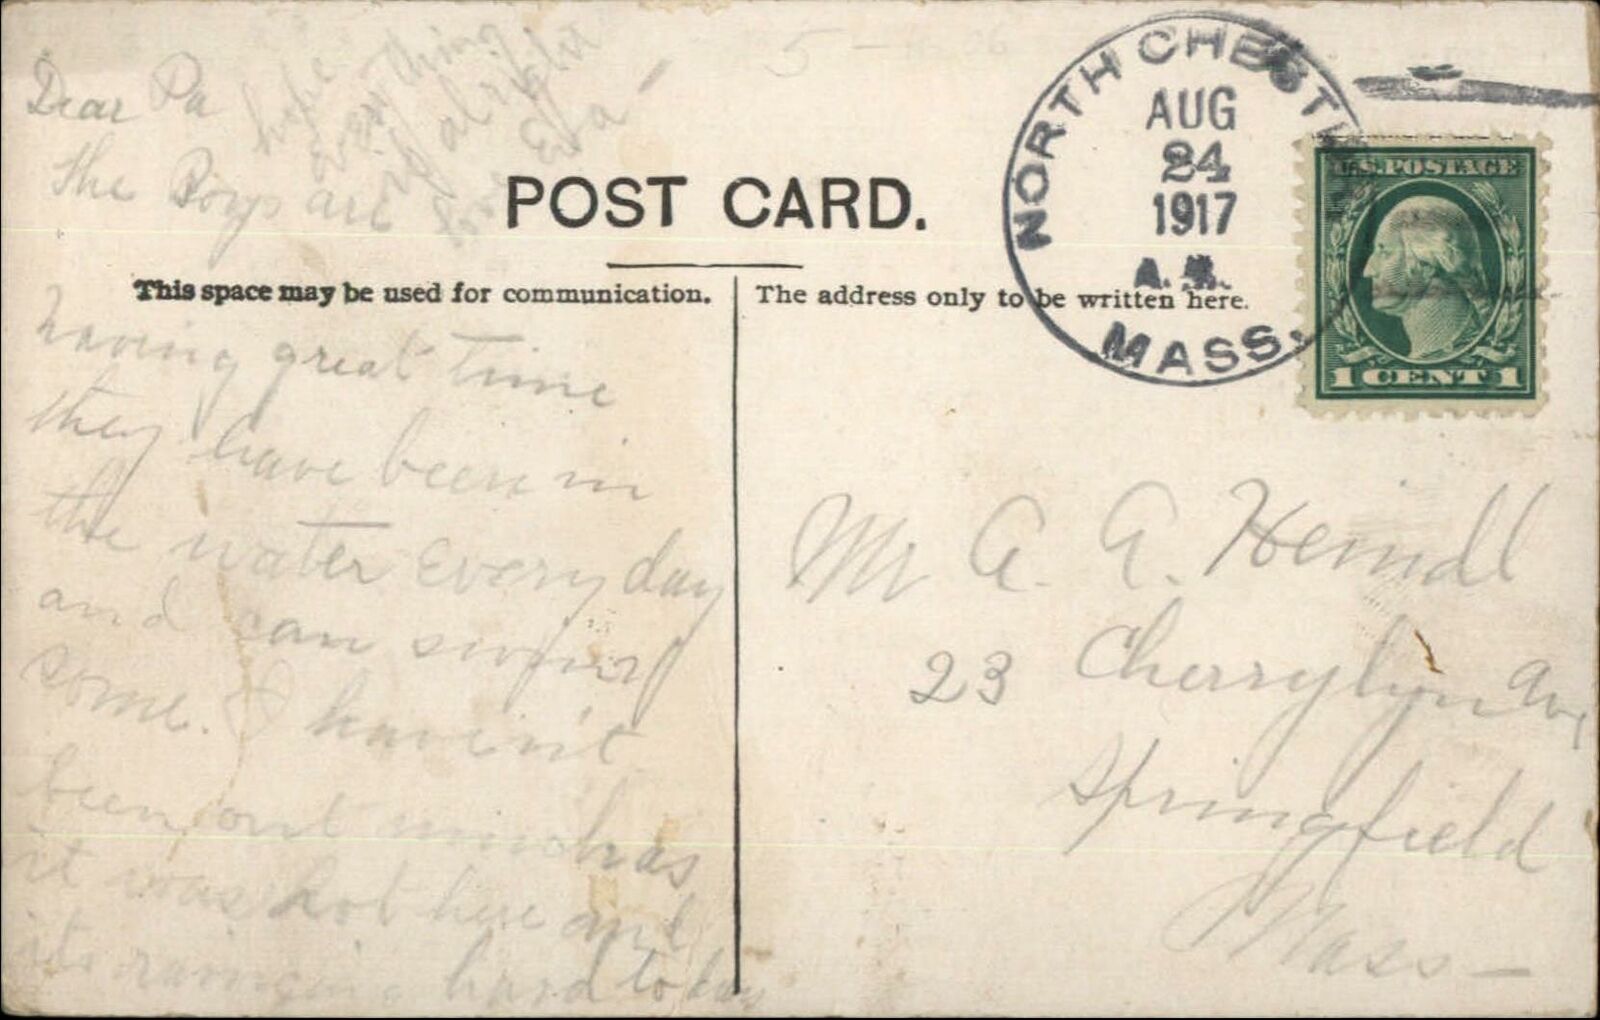 Dear Pa
The Boys are
having great time
they have been in
the water every day
and can swim
some. I haven't
been out much as
it was hot here and
its rainging hard to day
hope
everything
is alright
love Eva
POST CARD.
This space may be used for communication.
The address only to be written here.
NORTH CHEST
AUG
24
1917
A.M.
MASS.
U.S. POSTAGE
1 CENT 1
Mr A. A. Heindl
23 Cherrylyn Av,
Springfield
Mass—